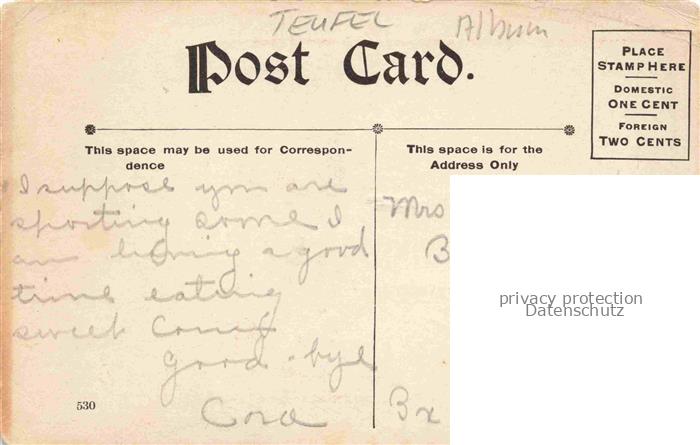 TEUFEL Album
Post Card.
PLACE
STAMP HERE
DOMESTIC
ONE CENT
FOREIGN
TWO CENTS
This space may be used for Correspon-
dence
This space is for the
Address Only
I suppose you are
sporting some I
am having a good
time eating
sweet
good-bye
Cora
Mrs
B
Bx
530
privacy protection
Datenschutz